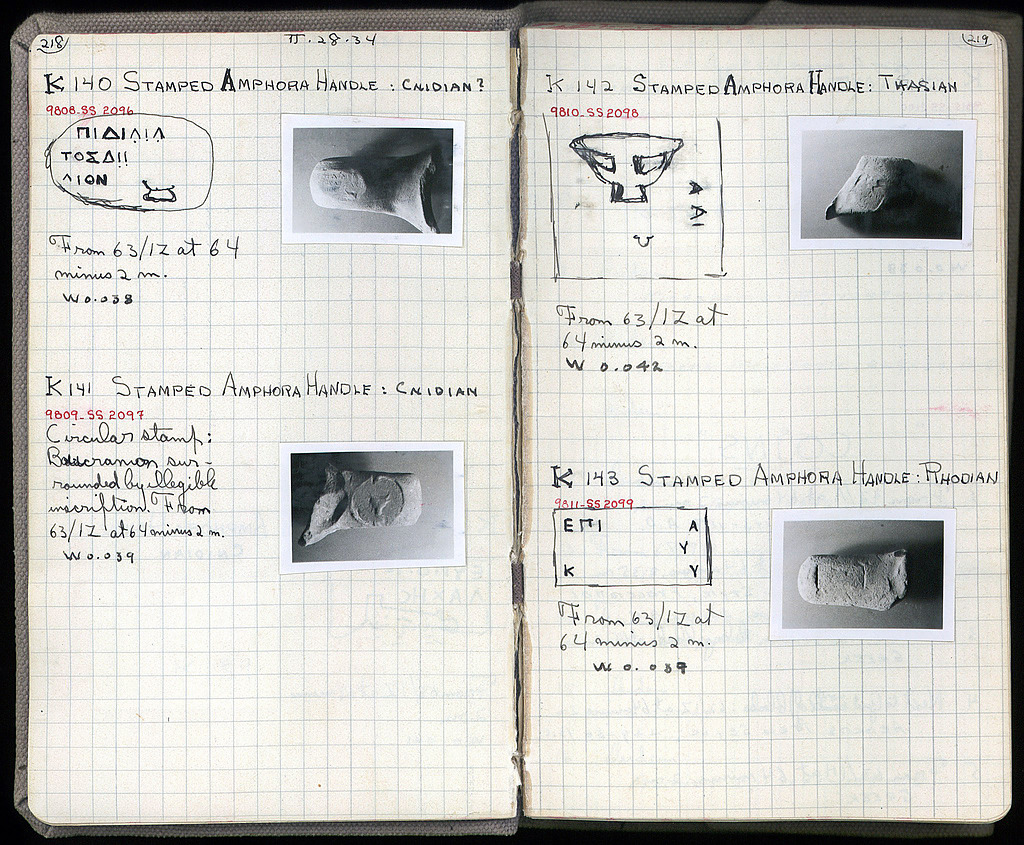 218
II.28.34
K 140 STAMPED AMPHORA HANDLE : CNIDIAN?
9808-SS 2096
ΤΟΣΔΙΙ
ΛΙΟΝ
From 63/ΙΖ at 64
minus 2 m.
W 0.038
K 141 STAMPED AMPHORA HANDLE : CNIDIAN
9809-SS 2097
Circular stamp:
Bucranion sur-
rounded by illegible
inscription. From
63/ΙΖ at 64 minus 2 m.
W 0.039
219
K 142 STAMPED AMPHORA HANDLE: THASIAN
9810-SS 2098
From 63/ΙΖ at
64 minus 2 m.
W 0.042
K 143 STAMPED AMPHORA HANDLE: RHODIAN
9811-SS 2099
ΕΠΙ Α
Υ
Κ Υ
From 63/ΙΖ at
64 minus 2 m.
W 0.039